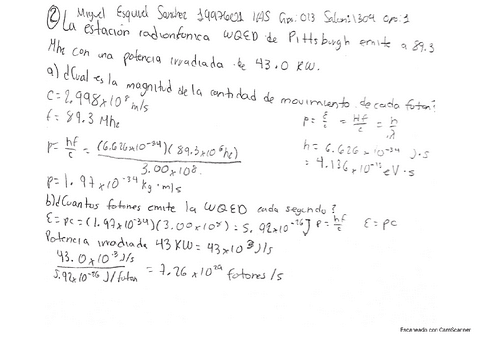 ② Miguel Esquivel Sanchez 19976021 IAS Gpo: 013 Salon: 1304 Opc: 1
La estación radionfonica WQED de Pittsburgh emite a 89.3
Mhz con una potencia irradiada de 43.0 KW.
a) ¿Cual es la magnitud de la cantidad de movimiento de cada foton?
C = 2.998 x 10⁸ m/s
f = 89.3 Mhz
p = E/c = Hf/c = h/λ
h = 6.626 x 10⁻³⁴ J·s
= 4.136 x 10⁻¹⁵ eV·s
p = hf/c = (6.626 x 10⁻³⁴)(89.3 x 10⁶ hz)/3.00 x 10⁸
p = 1.97 x 10⁻³⁴ kg·m/s
b) ¿Cuantos fotones emite la WQED cada segundo?
E = pc = (1.97 x 10⁻³⁴)(3.00 x 10⁸) = 5.92 x 10⁻²⁶ J p = hf/c E = pc
Potencia irradiada 43 KW = 43 x 10³ J/s
43.0 x 10³ J/s / 5.92 x 10⁻²⁶ J/foton = 7.26 x 10²⁹ fotones/s
Escaneado con CamScanner